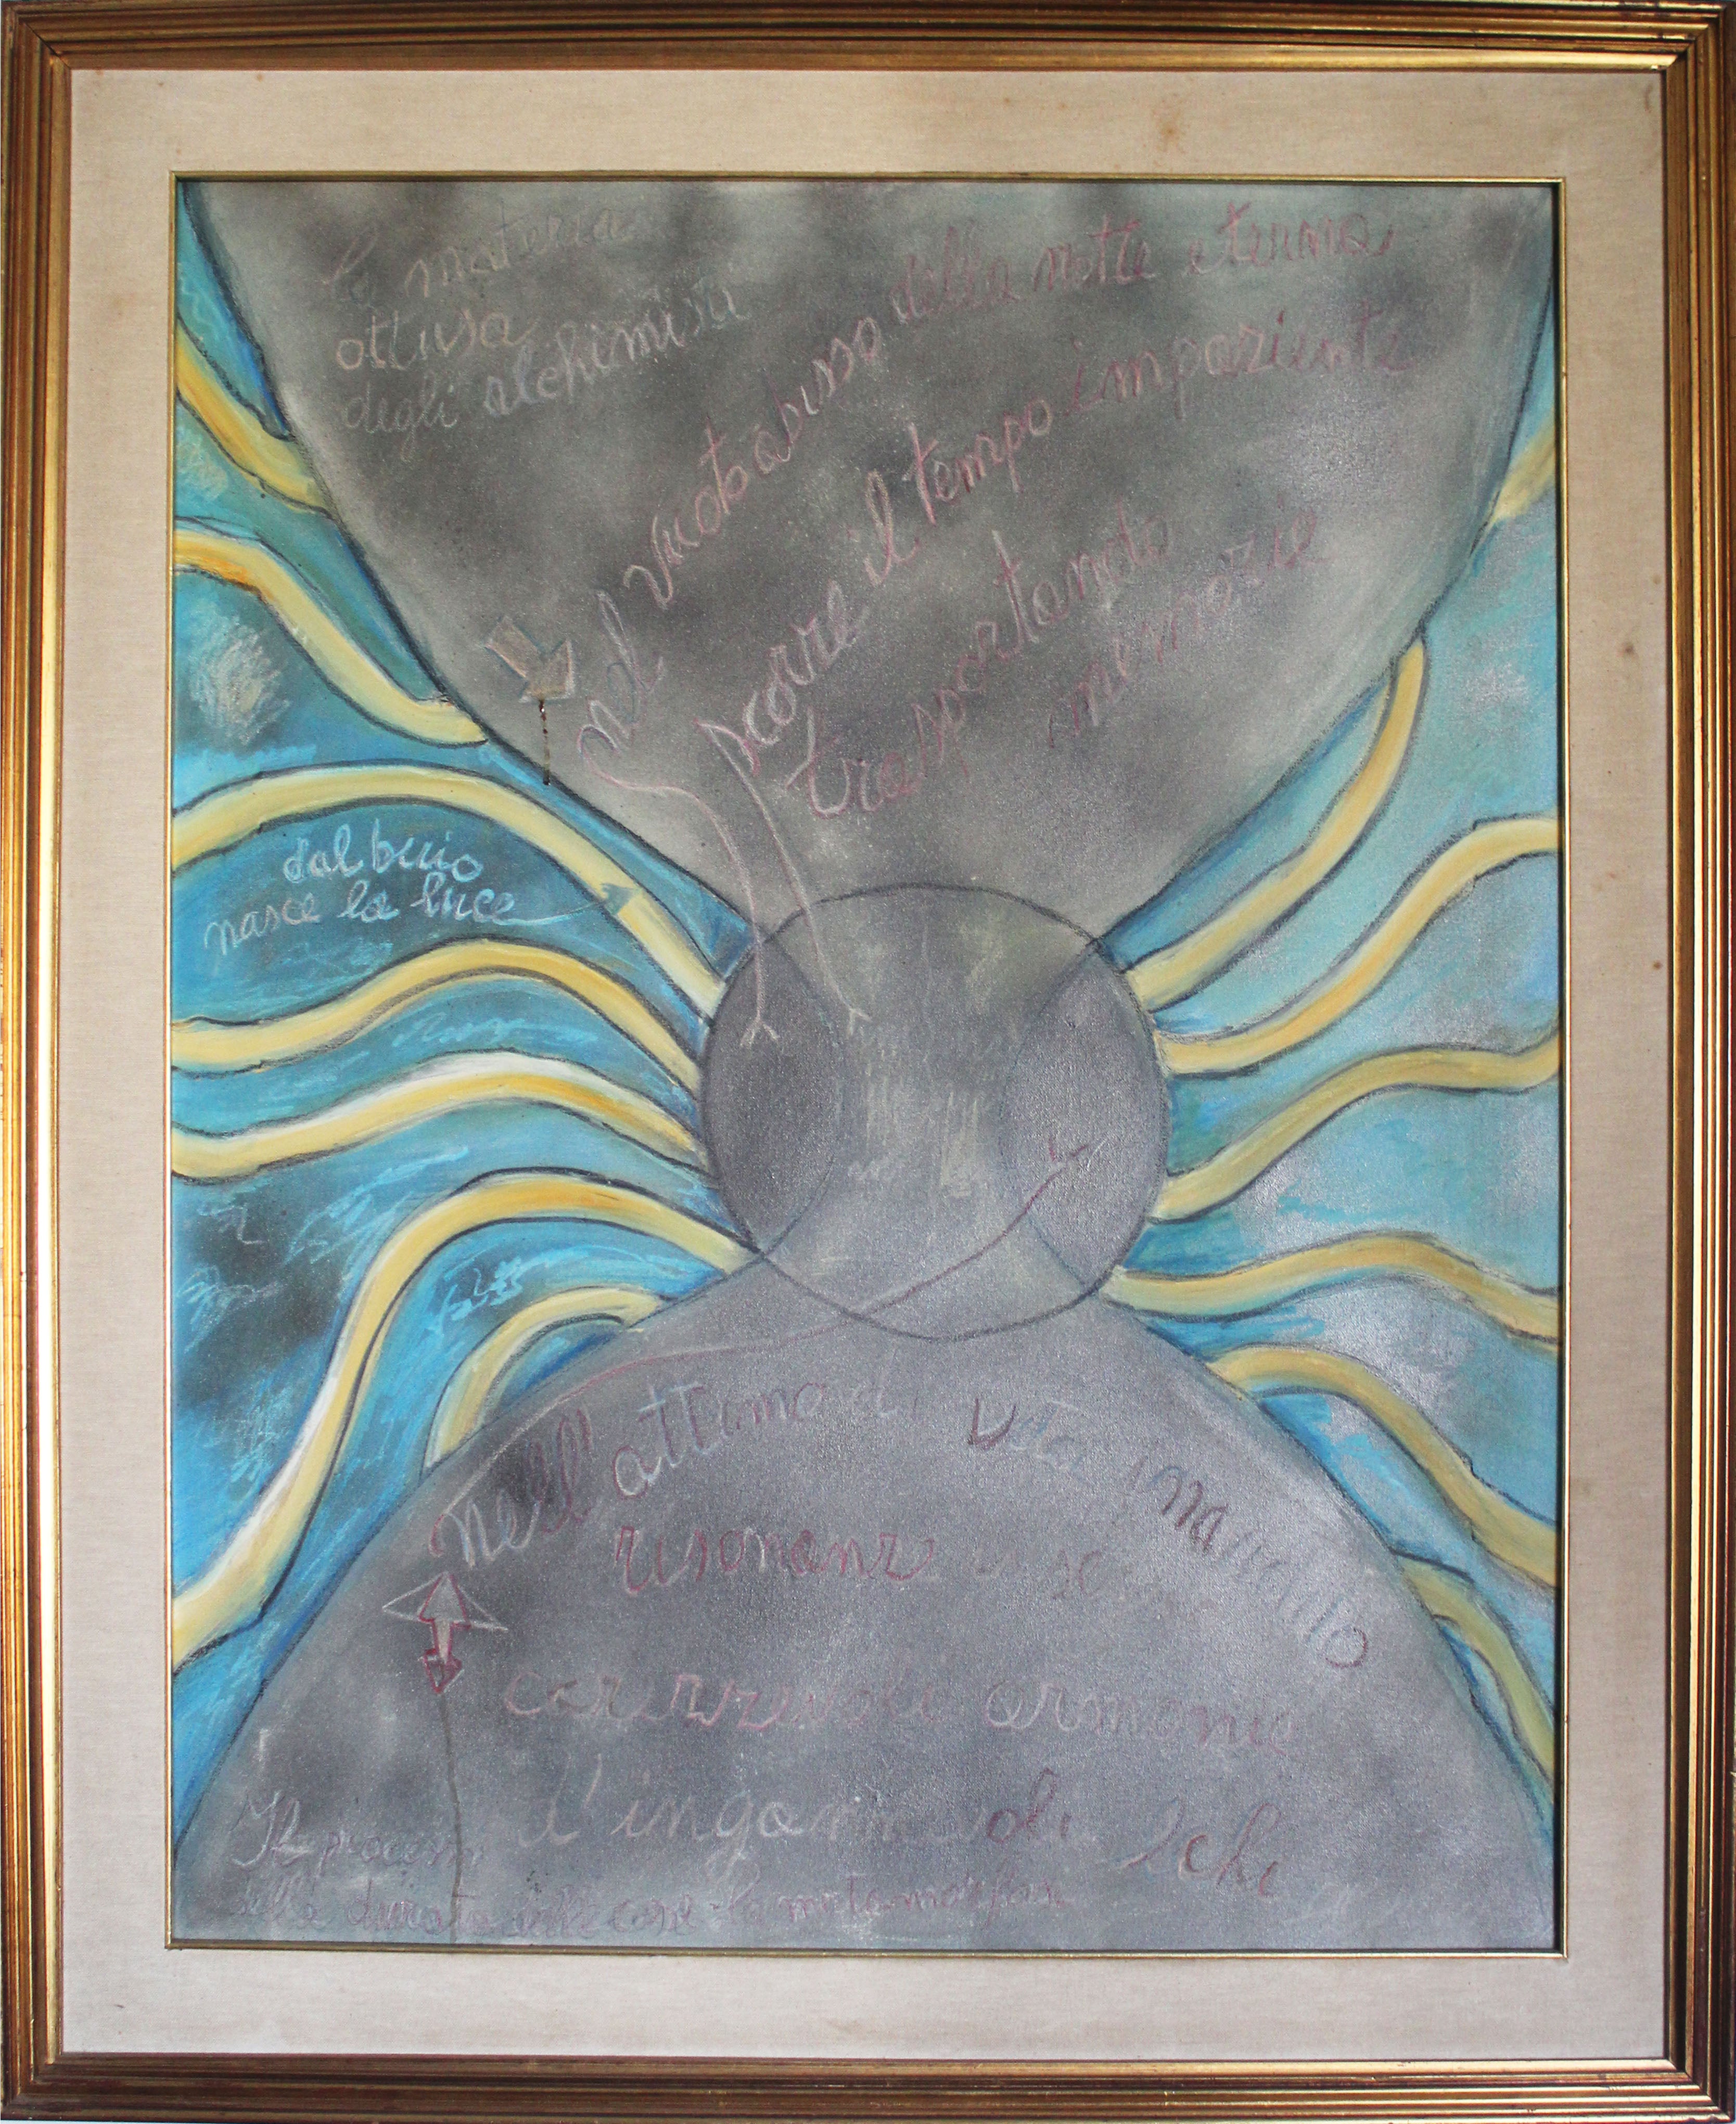 la materia
ottusa
degli alchimisti
nel vuoto abisso della notte eterna
scorre il tempo impaziente
trasportando
memorie
dal buio
nasce la luce
nell'attimo di vita
risonanze
carezzevoli armonie
d'ingannevoli echi
Il processo
della durata delle cose la metamorfosi